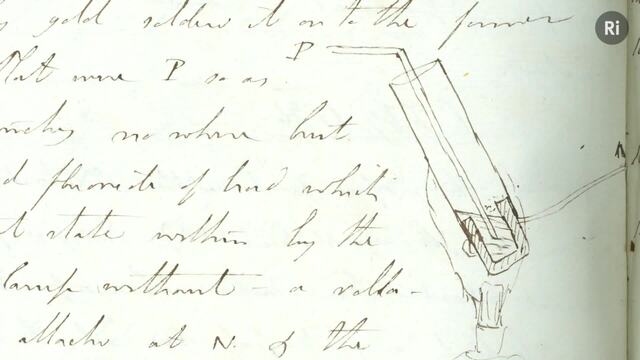 gold solder it on to the former
P
Plat wire P so as
touches no where but
d fluoride of lead which
t state within by the
lamp without - a volta-
attache at N. & the
N
Ri